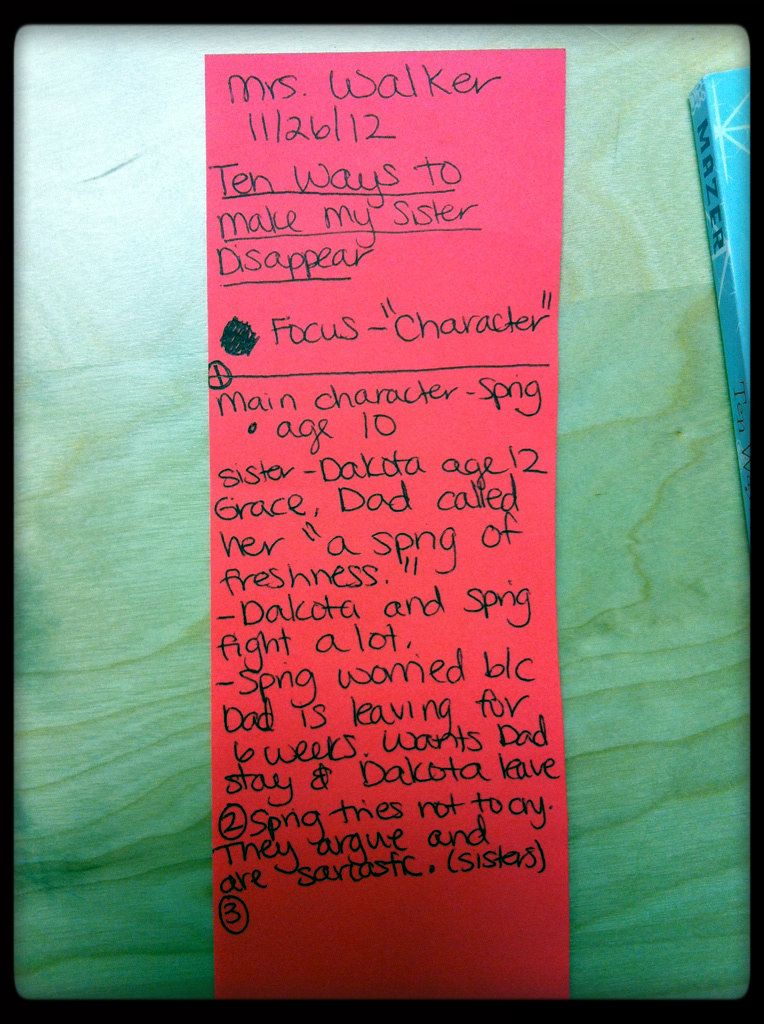 Mrs. Walker
11/26/12
Ten Ways to
make my Sister
Disappear
Focus - "Character"
①
Main character - Sprig
• age 10
sister - Dakota age 12
Grace, Dad called
her "a sprig of
freshness."
- Dakota and Sprig
fight a lot.
- Sprig worried b/c
Dad is leaving for
6 weeks. Wants Dad
stay & Dakota leave
② Sprig tries not to cry.
They argue and
are sarcastic. (sisters)
③
MAZER
Ten W